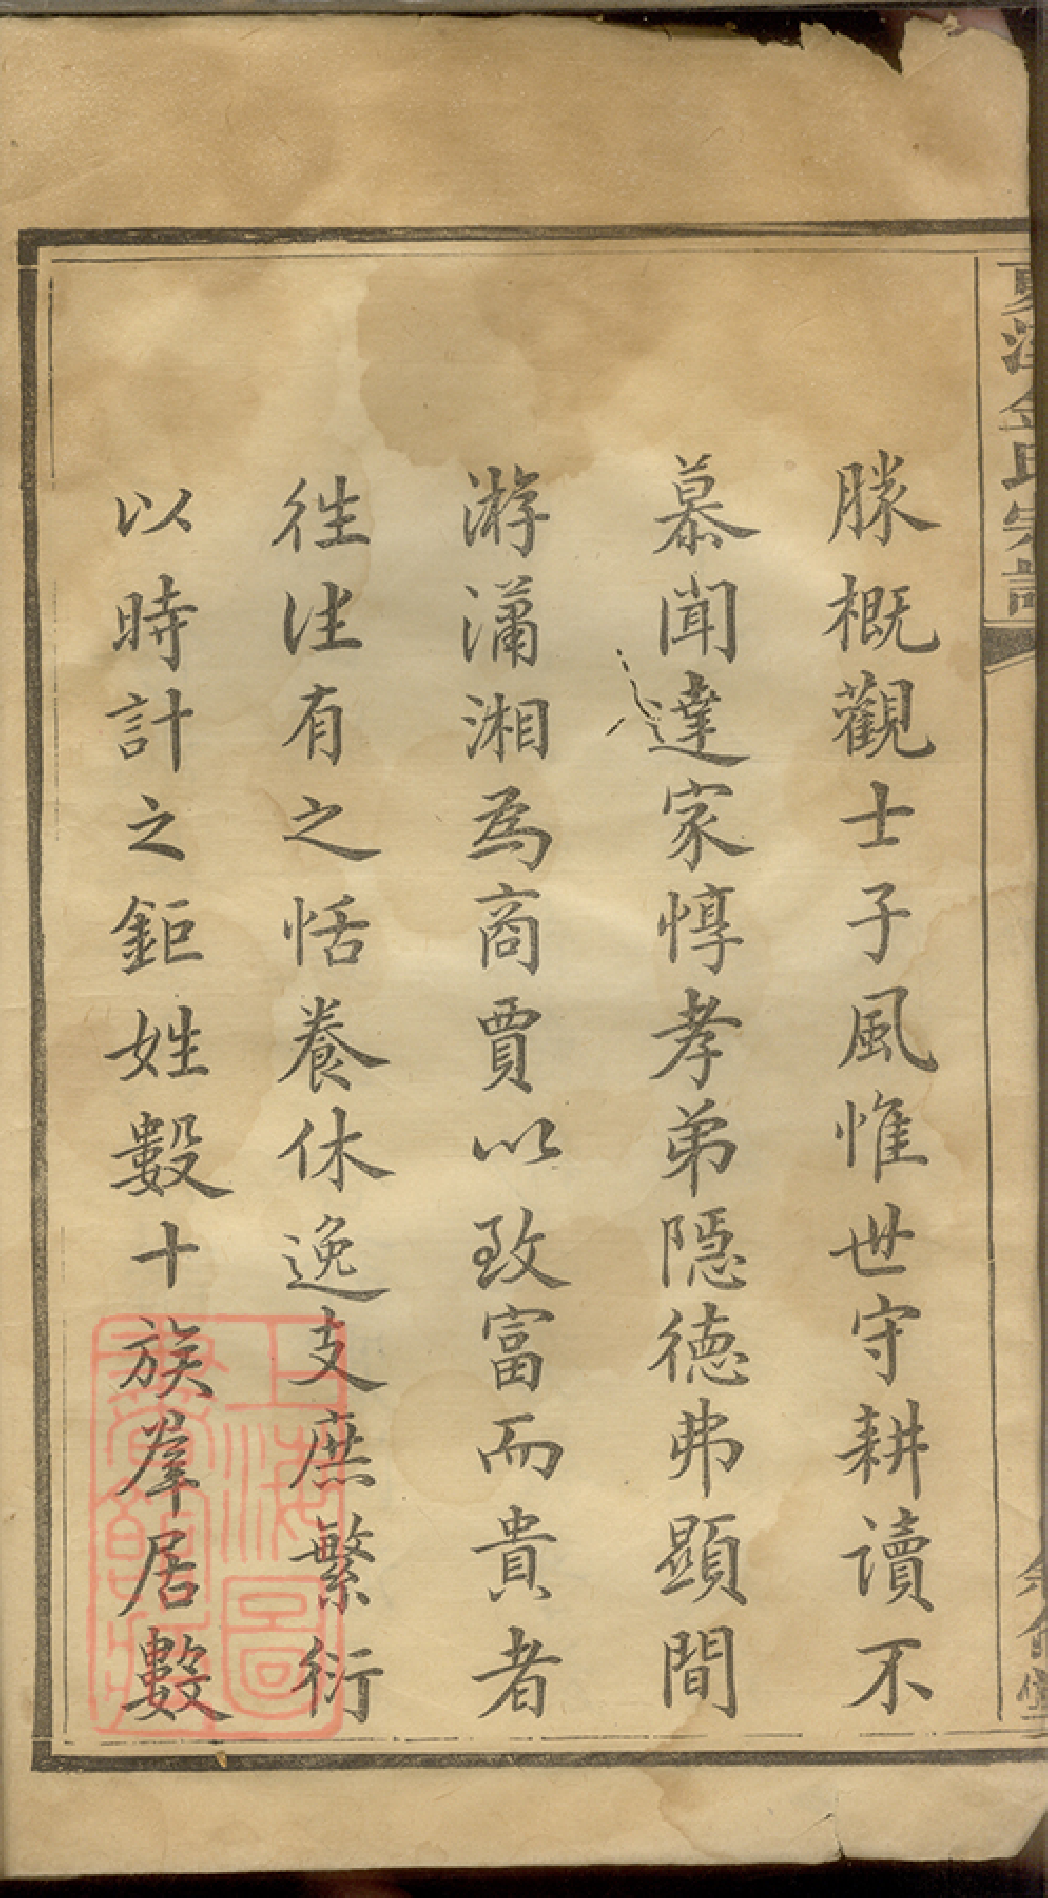 勝概觀士子風惟世守耕讀不
慕聞達家惇孝弟隱德弗顯間
游瀟湘為商賈以致富而貴者
往往有之恬養休逸支庶繁衍
以時計之鉅姓數十族羣居數
金氏宗譜
上海圖書館藏